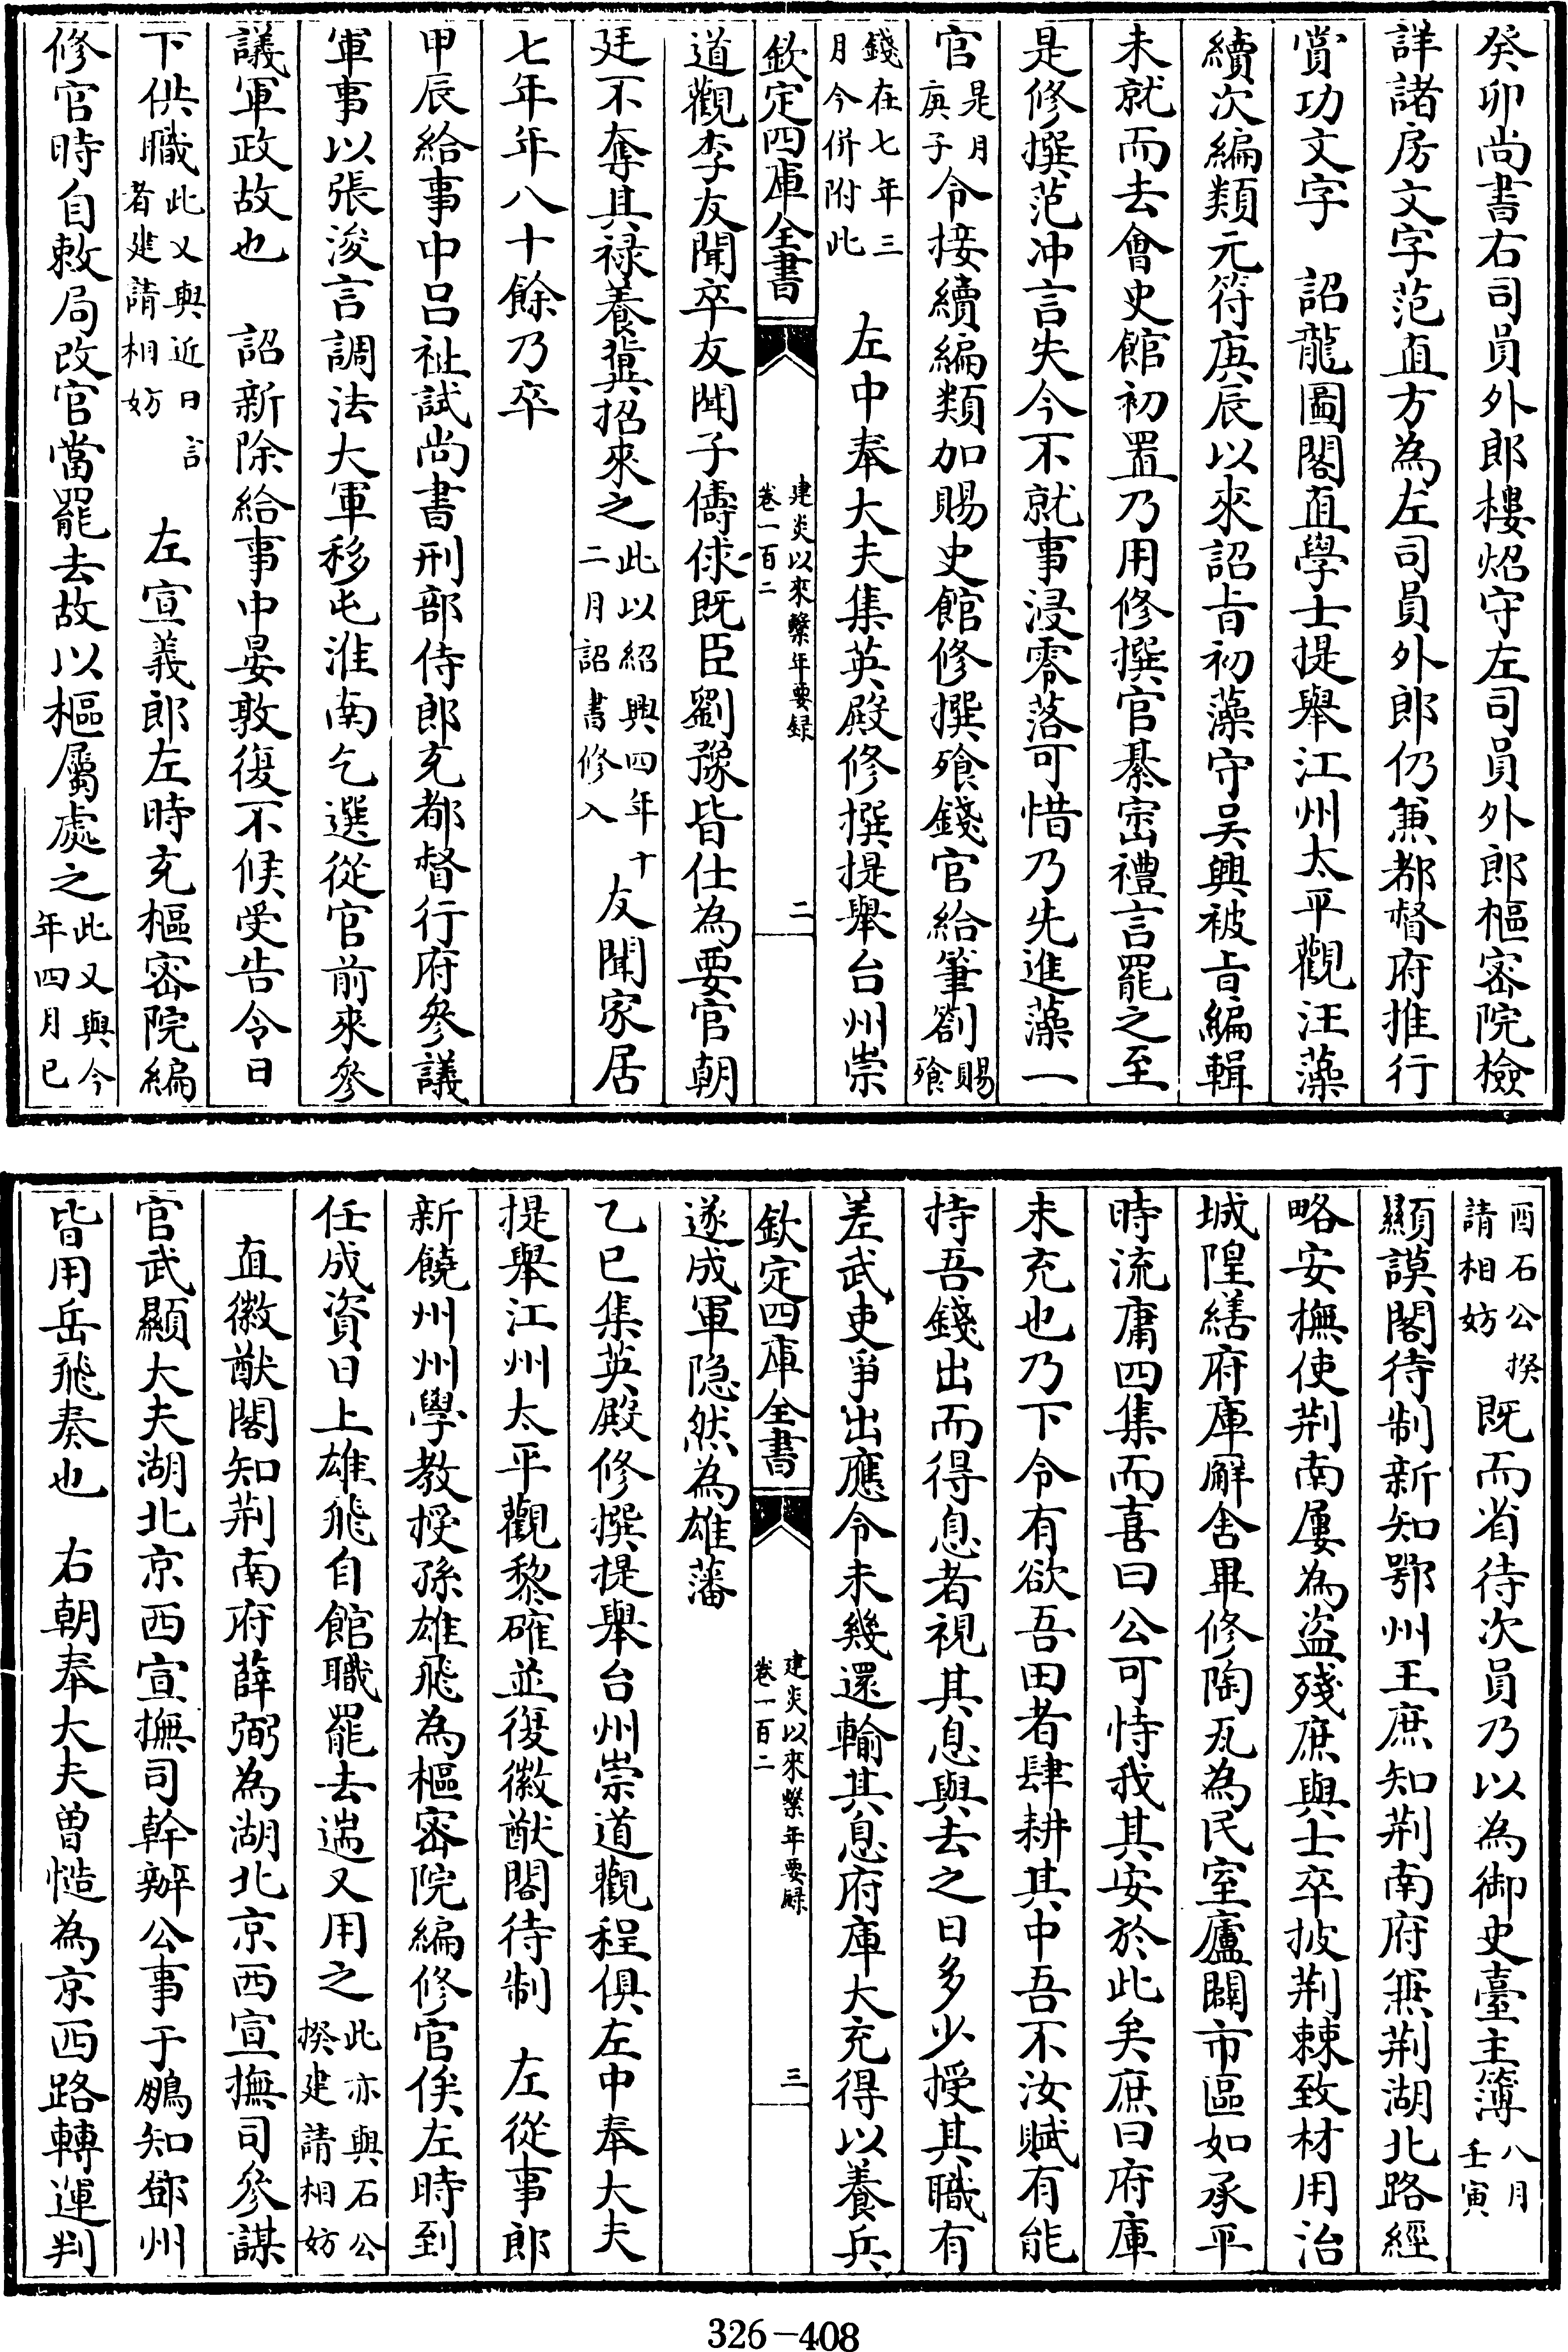 癸卯尚書右司員外郎樓炤守左司員外郎樞密院檢
詳諸房文字范直方為左司員外郎仍兼都督府推行
賞功文字　詔龍圖閣直學士提舉江州太平觀汪藻
續次編類元符庚辰以來詔旨初藻守吳興被旨編輯
未就而去會史館初置乃用修撰官綦崈禮言罷之至
是修撰范冲言失今不就事浸零落可惜乃先進藻一
官是月庚子令接續編類加賜史館修撰飱錢官給筆劄賜飱
錢在七年三月今併附此　左中奉大夫集英殿修撰提舉台州崇
欽定四庫全書　建炎以來繫年要錄卷一百二　二
道觀李友聞卒友聞子儔俅既臣劉豫皆仕為要官朝
廷不奪其禄養冀招來之此以紹興四年十二月詔書修入友聞家居
七年年八十餘乃卒
甲辰給事中吕祉試尚書刑部侍郎充都督行府參議
軍事以張浚言調法大軍移屯淮南乞選從官前來參
議軍政故也　詔新除給事中晏敦復不候受告令日
下供職此又與近日言者建請相妨　左宣義郎左時充樞密院編
修官時自敕局改官當罷去故以樞屬處之此又與今年四月己
酉石公揆請相妨既而省待次員乃以為御史臺主簿八月壬寅
顯謨閣待制新知鄂州王庶知荆南府兼荆湖北路經
略安撫使荆南屢為盜殘庶與士卒披荆棘致材用治
城隍繕府庫廨舍畢修陶瓦為民室廬闢市區如承平
時流庸四集而喜曰公可恃我其安於此矣庶曰府庫
未充也乃下令有欲吾田者肆耕其中吾不汝賦有能
持吾錢出而得息者視其息與去之日多少授其職有
差武吏爭出應令未幾還輸其息府庫大充得以養兵
欽定四庫全書　建炎以來繫年要錄卷一百二　三
遂成軍隱然為雄藩
乙巳集英殿修撰提舉台州崇道觀程俱左中奉大夫
提舉江州太平觀黎確並復徽猷閣待制　左從事郎
新饒州州學教授孫雄飛為樞密院編修官俟左時到
任成資日上雄飛自館職罷去耑又用之此亦與石公揆建請相妨
直徽猷閣知荆南府薛弼為湖北京西宣撫司參謀
官武顯大夫湖北京西宣撫司幹辦公事于鵬知鄧州
皆用岳飛奏也　右朝奉大夫曾慥為京西路轉運判
326-408